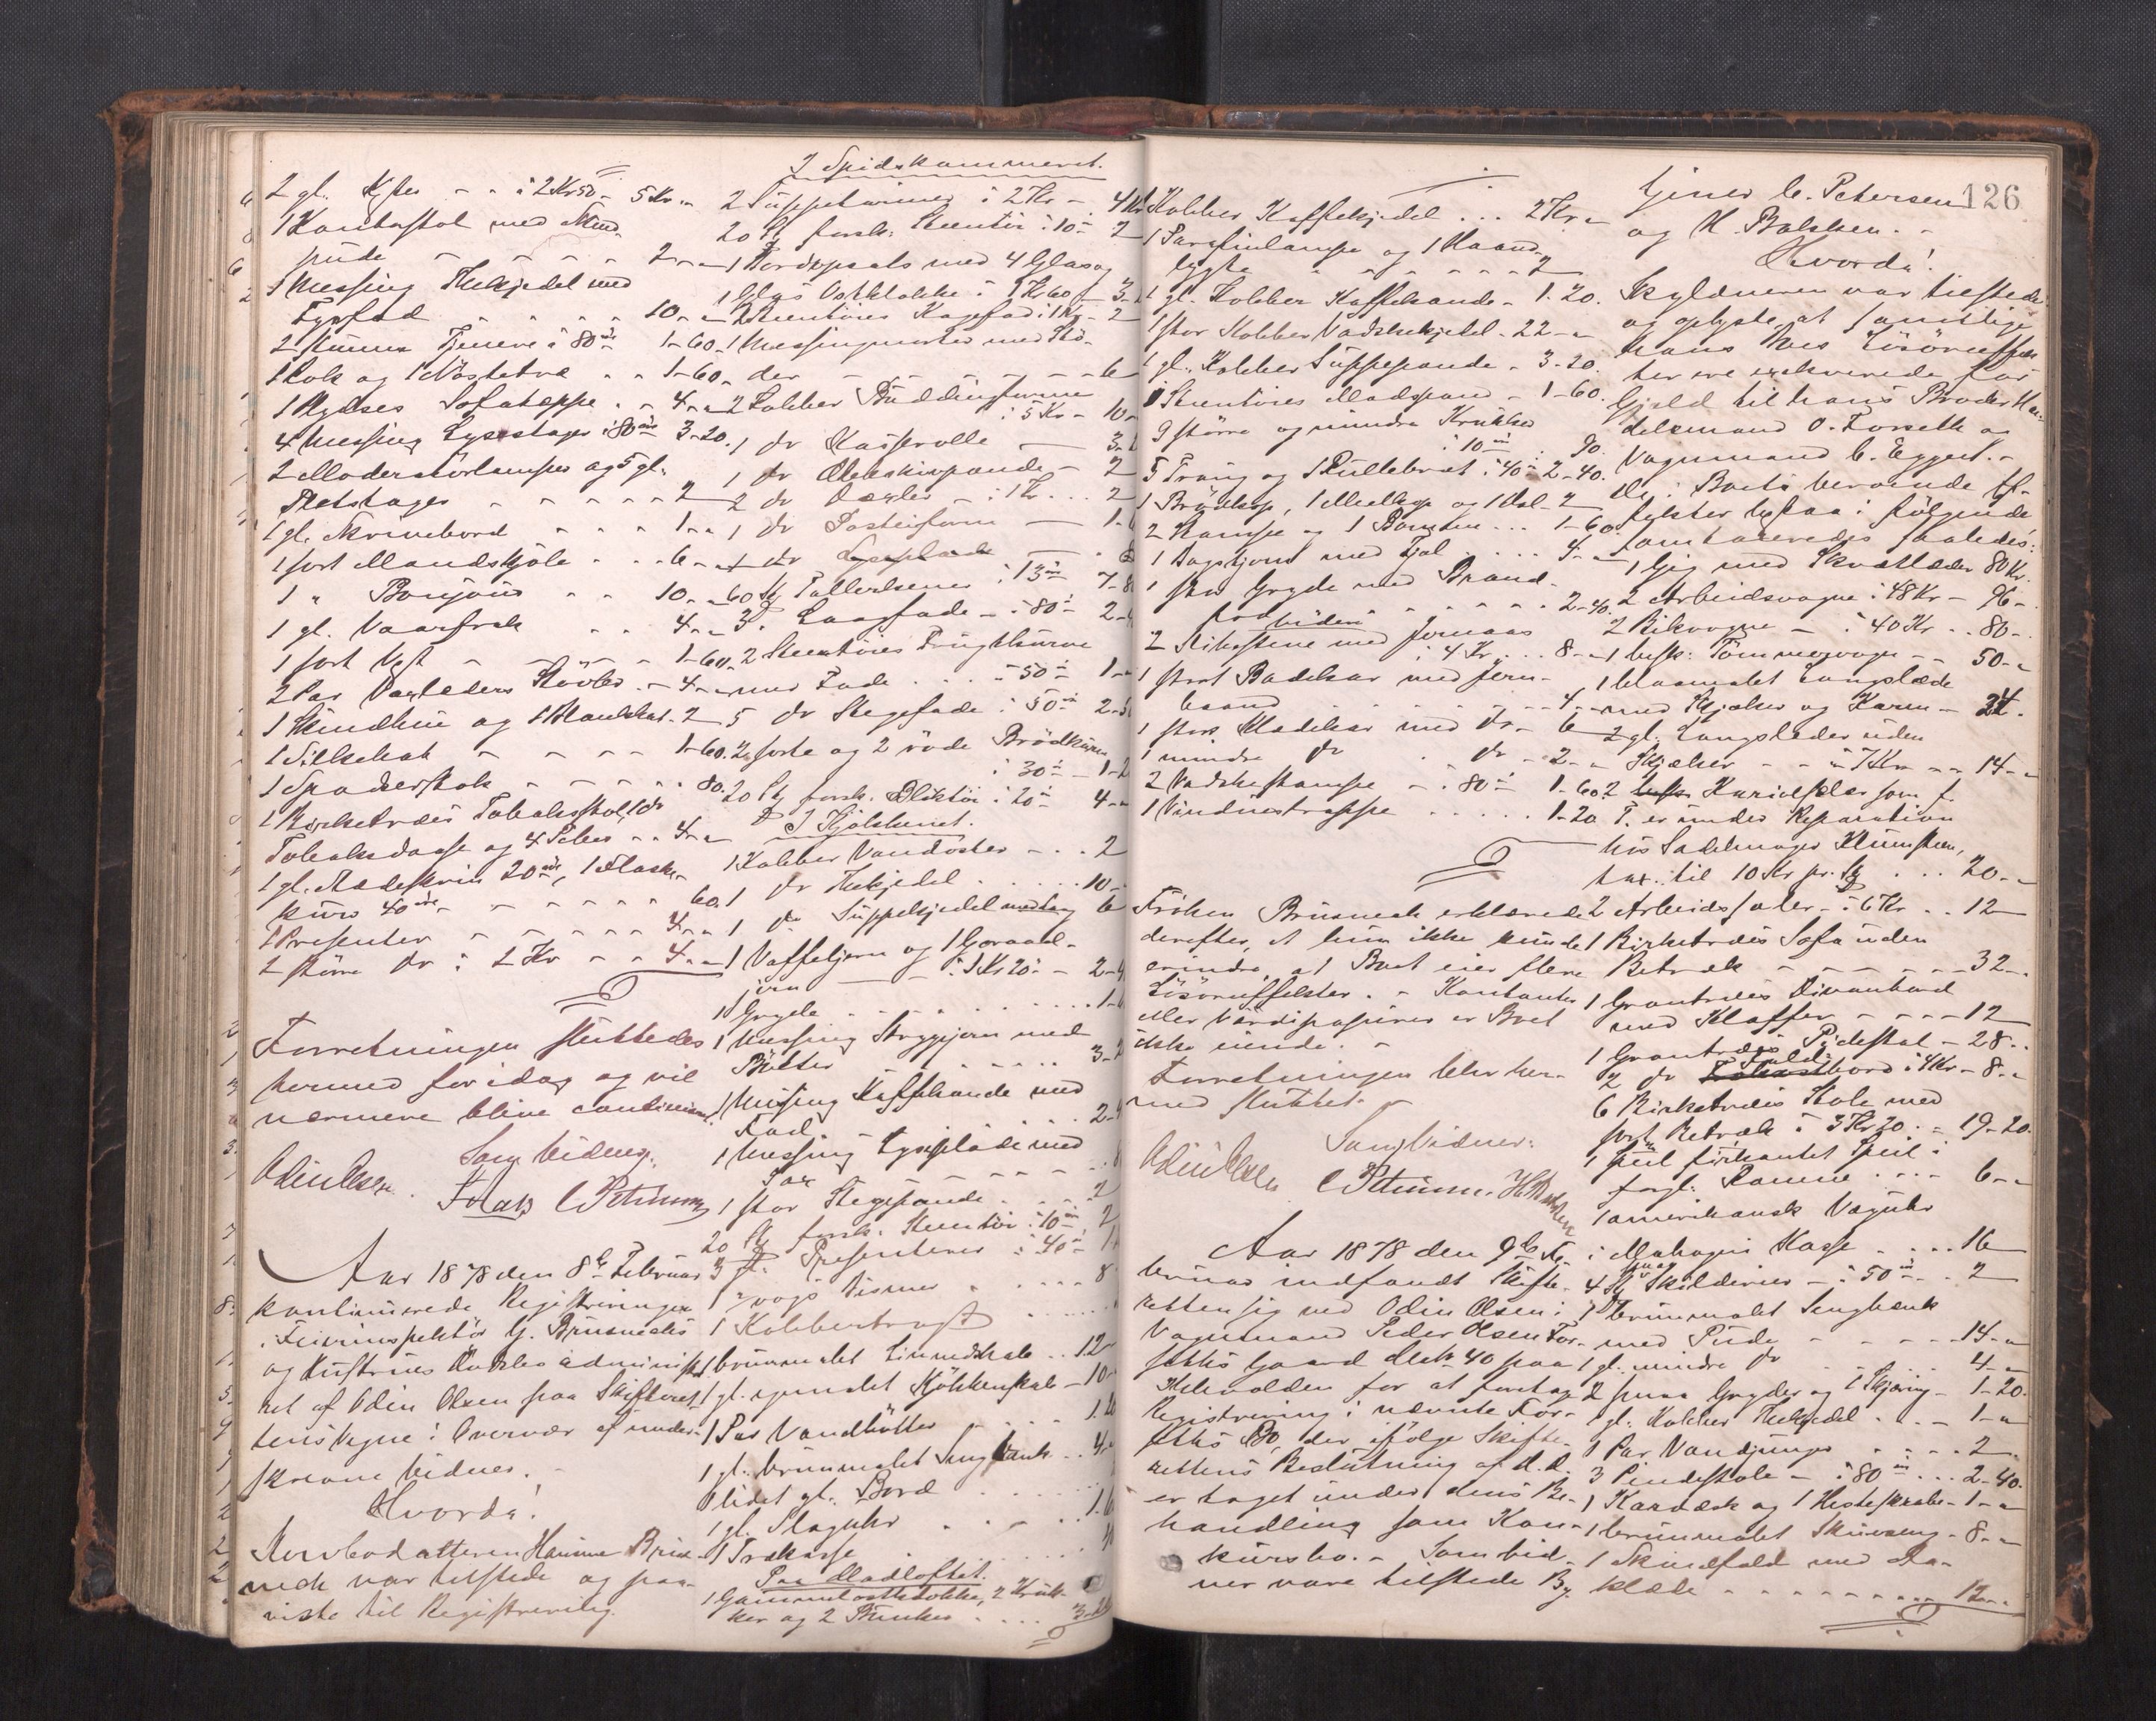 2 gl. Kister - - à 2 Kr 50 - 5 Kr. "
1 Kontorstol med Skind-
pude - - - - - 2 - "
1 Messing Thekjedel med
Fyrfad - - - - 10 - "
2 stumme Tjenere à 80 øre 1 - 60.
1 Rok og 1 Nøstetræ - - 1 - 60.
1 Sofateppe - - 4 - "
4 Messing Lysestager à 80 øre 3 - 20.
2 Moderatørlamper og 5 gl.
Pletstager - - - - - 2
1 gl. Skrivebord - - - 1 - "
1 sort Mandskjole - - - 6 - "
1 " Bonjour - - 10 - "
1 gl. Vaarfrak - - 4 - "
1 sort Vest - - - - 1 - 60.
2 Par Støvler - 4 - "
1 Skindhue og 1 Hat - 2
1 Silkehat - - - - 1 - 60.
1 Spadserstok - - - - - 80.
1 Birketræes Tobaksstol, 1 do
Tobaksdaase og 4 Piber - - 4 - "
1 gl. Madeskrin 20 øre, 1 Flaske-
kurv 40 øre - - - - - 60.
1 Presenter - - - - - 4 - "
2 større do à 2 Kr - - 4 - "
Forretningen sluttedes
hermed for idag og vil
nærmere blive continueret.
Som Vidner.
Odin Olsen. C Petersen
Aar 1878 den 8de Februar
kontinuerede Registreringen
i Feierinspektør G. Brusmachs
og Hustrues Dødsbo administre-
ret af Odin Olsen paa Skifteret-
tens Vegne i Overvær af under-
skrevne Vidner. -
Hvorda!
Stervboedatteren Hanna Brus-
mach var tilstede og paa-
viste til Registrering.
I Spidskammeret.
2 Suppeteriner à 2 Kr - 4 Kr
20 St forsk: Stentøi à 10 øre 2
1 Bordopsats med 4 Glas og
1 Glas Osteklokke à 1 Kr 60 - 3 -
2 Stentøies Kagefad à 1 Kr - 2
1 Messingmorter med Stø-
der - - - - - - 6
2 Kobber Puddingforme
à 5 Kr - 10 -
1 do Kasserolle - 3 -
1 do Æbleskivpande - 2
2 do - à 1 Kr. . . 2
1 do Posteiform - 1 -
1 do
60 St Tallerkener à 13 øre 7 - 8
3 " Laagfade - à 80 øre 2 - 4
2 Stentøies Frugtkurve
med Fade . . . à 50 øre 1 - "
5 do Stegefade à 50 øre 2 - 5
2 sorte og 2 røde Brødkurve
à 30 øre - 1 - 2
20 St forsk. Bliktøi à 20 øre 4 - "
I Kjøkkenet.
1 Kobber Vandøser - . . 2
1 do Thekjedel . . . . . 10 -
1 do Suppekjedel med Laag 6
1 Vaffeljern og 1 Goraad-
jern - à 1 Kr 20 øre - 2 - 4
1 Gryde - - - . . . . . 1 -
1 Messing Strygejern med
Bolter - . . . . . . 3 - 2
1 Messing Kaffekande med
Fad . . . . 2 -
1 Messing Lyseplade med
Sax - - - - - . . 8
1 stor Stegepande . . . . 2
20 St forsk. Stentøi à 10 øre 2
3 gl. Presenterer à 40 øre 1 -
1 Bismer . . . . 8
1 Kobbertragt . . . . .
1 brunmalet Linnedskab . . 12 -
1 gl. umalet Kjøkkenskab - 10 -
1 Par Vandbøtter - . . . . 1. 20
1 gl. brunmalet Sengbænk . . 4. "
1 lidet gl. Bord . . . . .
1 gl. Slaguhr . . . . 1. 6
1 Trækasse . . . . . . . .
Paa Madloftet.
1 Gammelosteklokke, 2 Kruk-
ker og 2 Bunker . . . . 3 - 20
126
Kobber Kaffekjedel . . . 2 Kr. "
1 Parafinlampe og 1 Haand-
lygte - - - - - - - 2
1 gl. Kobber Kaffekande - 1. 20.
1 stor Kobber Vadskekjedel - 22 - "
1 gl. Kobber Suppepande - 3 - 20.
1 Stentøies Madspand - 1 - 60.
9 større og mindre Krukker
à 10 øre . 90.
5 Traug og 1 Rullebræt à 40 øre 2 - 40.
1 Brødkop, 1 Melkop og 1 - 2
2 Stampe og 1 - - - 1 - 60.
1 Bagstejern med Fjøl . . . . 4 - "
1 stor Gryde med Brand-
jern - - - - - - - 2 - 40.
2 Slibestene med Jernaas
à 4 Kr . . . 8 - "
1 stort Badekar med Jern-
baand - - - - - 4 - "
1 stort Kladekar med do - 6
1 mindre do . do - 2 - "
2 Vadskestampe - à 80 øre 1 - 60.
1 Vinduestrappe . . . . . 1 - 20
Frøken Brusmach erklærede
derefter, at hun ikke kunde
erindre, at Boet eier flere
Løsøreeffekter. - Kontanter
eller Værdipapirer er Boet
ikke eiende. -
Forretningen blev her-
med sluttet. -
Som Vidner:
Odin Olsen C Petersen. H. Bakken
Aar 1878 den 9de Fe-
bruar indfandt Skifte-
retten sig ved Odin Olsen i
Vognmand Peder Olsen For-
seths Gaard Matr. 40 paa
Kalvolden for at foretage
Registrering i nævnte For-
seths Bo, der ifølge Skifte-
rettens Beslutning af d.D.
er taget under dens Be-
handling som Kon-
kursbo. - Som Vid-
ner vare tilstede By-
tjener C. Petersen
og K. Bakken. -
Hvorda!
Skyldneren var tilstede
og oplyste, at samtlige
hans Boes Løsøreeffek-
ter ere exekverede for
Gjæld til hans Broder Han-
delsmand O. Forseth og
Vognmand C. Eggert. -
De i Boets beroende Ef-
fekter bestaa i følgende
som taxeredes saaledes:
1 Gig med Skvætlæder 80 Kr.
2 Arbeidsvogne à 48 Kr - 96 -
2 Vikvogne - à 40 Kr . . 80 -
1 besk: Tømmervogn - - 50 - "
1 blaamalet Langslæde
med Skjæker og Karm - 24.
2 gl. Langslæder uden
Skjæker - - à 7 Kr - - 14 - "
2 Karidslæder som f.
T. er under Reparation
hos Sadelmager Klumsteen,
tax. til 10 Kr pr. St . . . 20 - "
2 Arbeidssæler - à 6 Kr . . 12
1 Birketræes Sofa uden
Betræk - - - - - - 32 - "
1 Grantræes Divanbord
med Klaffer - - - - 12
1 Grantræes Pidestal - 28 - -
2 do Foldebord à 4 Kr - 8 - "
6 Birketræes Stole med
sort Betræk à 3 Kr 20 - 19 - 20.
1 firkantet Speil i
forgl. Ramme . . . . 6 - "
1 amerikansk Væguhr
i Mahogni Kasse . . . . 16
4 St smaa Skilderier - à 50 øre . . 2
1 brunmalet Sengbænk
med Pude - - - - - 14 - "
1 gl. mindre do - . . . . 4 - "
2 smaa Gryder og 1 Skjæring - 1 - 20.
1 gl. Kobber Thekjedel . . - 1 - "
1 Par Vandjunger . . . . 2 -
3 Pindestole - à 80 øre . . . 2 - 40.
1 Kardæsk og 1 Hesteskrabe - 1 - "
1 brunmalet Skuvseng - 8 - "
1 Skindfeld med Aa-
klæde - - - - - - - 12 - "